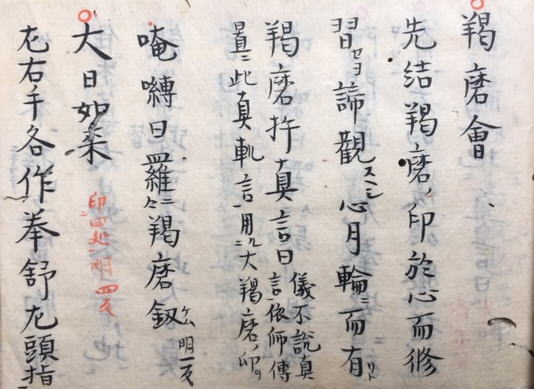 羯磨會
先結羯磨ノ印於心而修
習セヨ諦觀スヘシ心月輪ニ而有リト
羯磨杵真言曰儀不說真言依師傳
此真軌言用大羯磨ノ印ヲ
唵嚩日羅二合羯磨釼 明一反
大日如来 印四処明四反
左右手各作拳舒左頭指